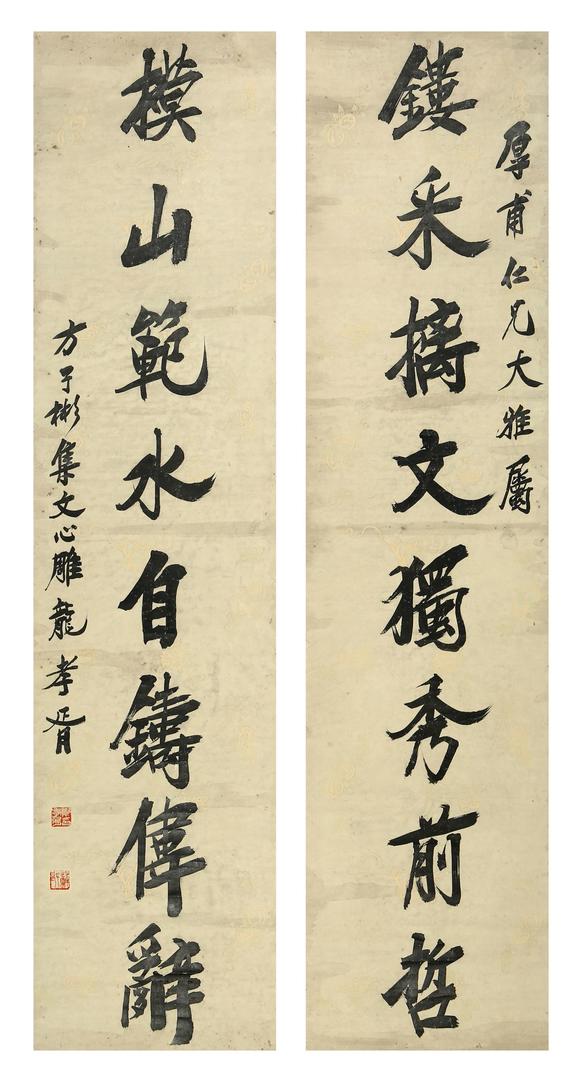 厚甫仁兄大雅屬
鏤采摛文獨秀前哲
模山範水自鑄偉辭
方子彬集文心雕龍孝胥